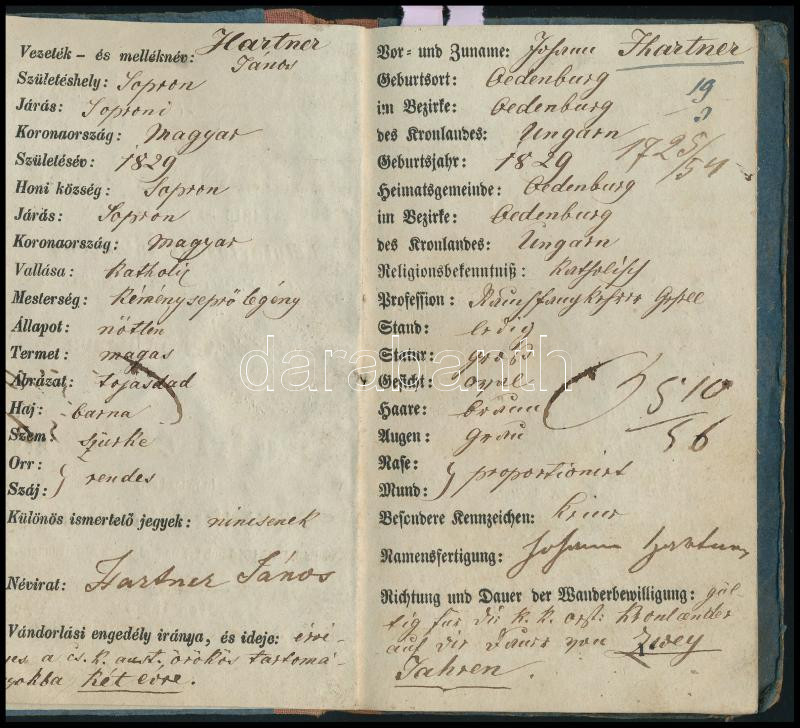 Vezeték- és melléknév: Hartner
János
Születéshely: Sopron
Járás: Soproni
Koronaország: Magyar
Születésév: 1829
Honi község: Sopron
Járás: Sopron
Koronaország: Magyar
Vallása: Katholic
Mesterség: Kéményseprő legény
Állapot: nőtlen
Termet: magas
Ábrázat: tojásdad
Haj: barna
Szem: szürke
Orr:
Száj: } rendes
Különös ismertelő jegyek: nincsenek
Névirat: Hartner János
Vándorlási engedély iránya, és ideje: érvé-
nyes a cs. k. aust. örökös tartomá-
nyokba két évre.
Vor- und Zuname: Johann Thartner
Geburtsort: Oedenburg
19
im Bezirke: Oedenburg
des Kronlandes: Ungarn
1725/54
Geburtsjahr: 1829
Heimatsgemeinde: Oedenburg
im Bezirke: Oedenburg
des Kronlandes: Ungarn
Religionsbekenntniß: Katholisch
Profession: Rauchfangkehrer Gesell
Stand: ledig
Statur: groß
Gesicht: oval
Haare: braun
510
56
Augen: grau
Nase:
Mund: } proportionirt
Besondere Kennzeichen: keine
Namensfertigung: Johann Hartner
Richtung und Dauer der Wanderbewilligung: gül-
tig für die k. k. öst. Kronländer
auf die Dauer von Zwey
Jahren.
darabanth